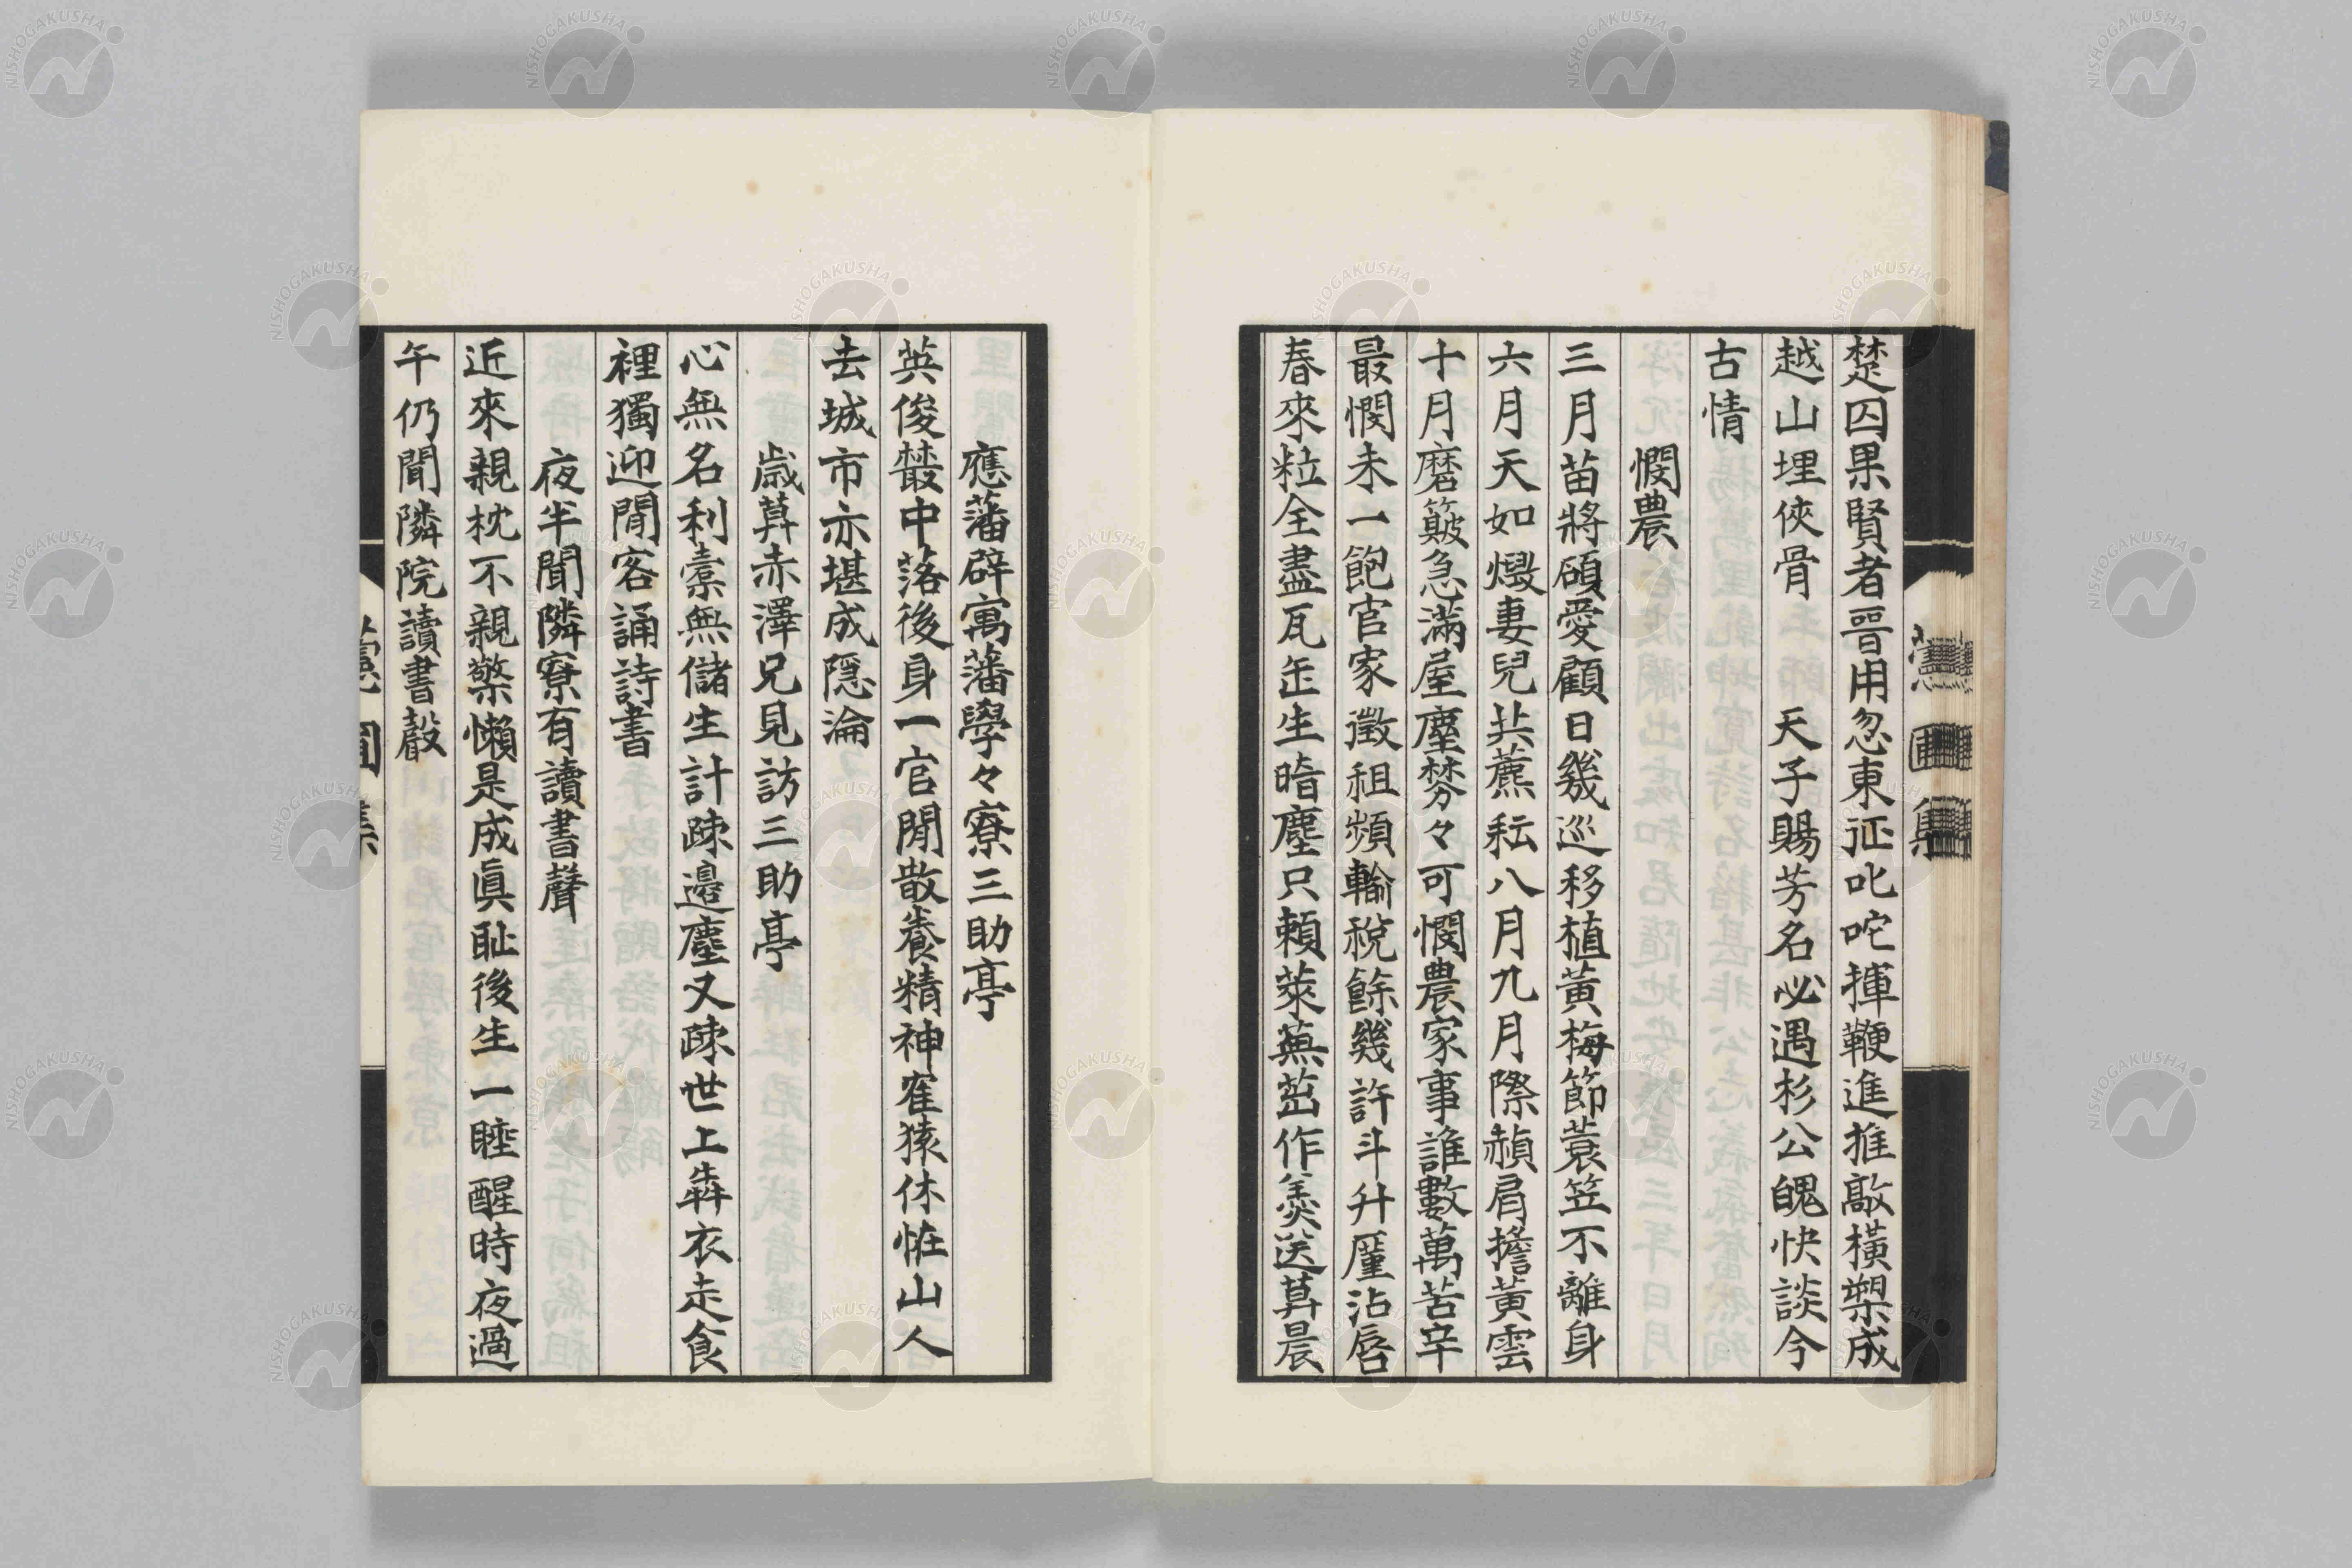 楚囚果賢者晉用忽東征叱咤揮鞭進推敲橫槊成
越山埋俠骨　天子賜芳名必遇杉公魄快談今
古情
憫農
三月苗將碩愛顧日幾巡移植黃梅節蓑笠不離身
六月天如燬妻兒共藨耘八月九月際赬肩擔黃雲
十月磨簸急滿屋塵棼々可憫農家事誰數萬苦辛
最憫未一飽官家徵租頻輸稅餘幾許斗升廑沾唇
春來粒全盡瓦缶生暗塵只賴萊蕪茁作羹送暮晨
應藩辟寓藩學々寮三助亭
英俊叢中落後身一官閒散養精神寉猿休恠山人
去城市亦堪成隱淪
歲暮赤澤兄見訪三助亭
心無名利槖無儲生計疎邉塵又疎世上犇衣走食
裡獨迎閒客誦詩書
夜半聞隣寮有讀書聲
近來親枕不親檠懶是成眞耻後生一睡醒時夜過
午仍聞隣院讀書聲